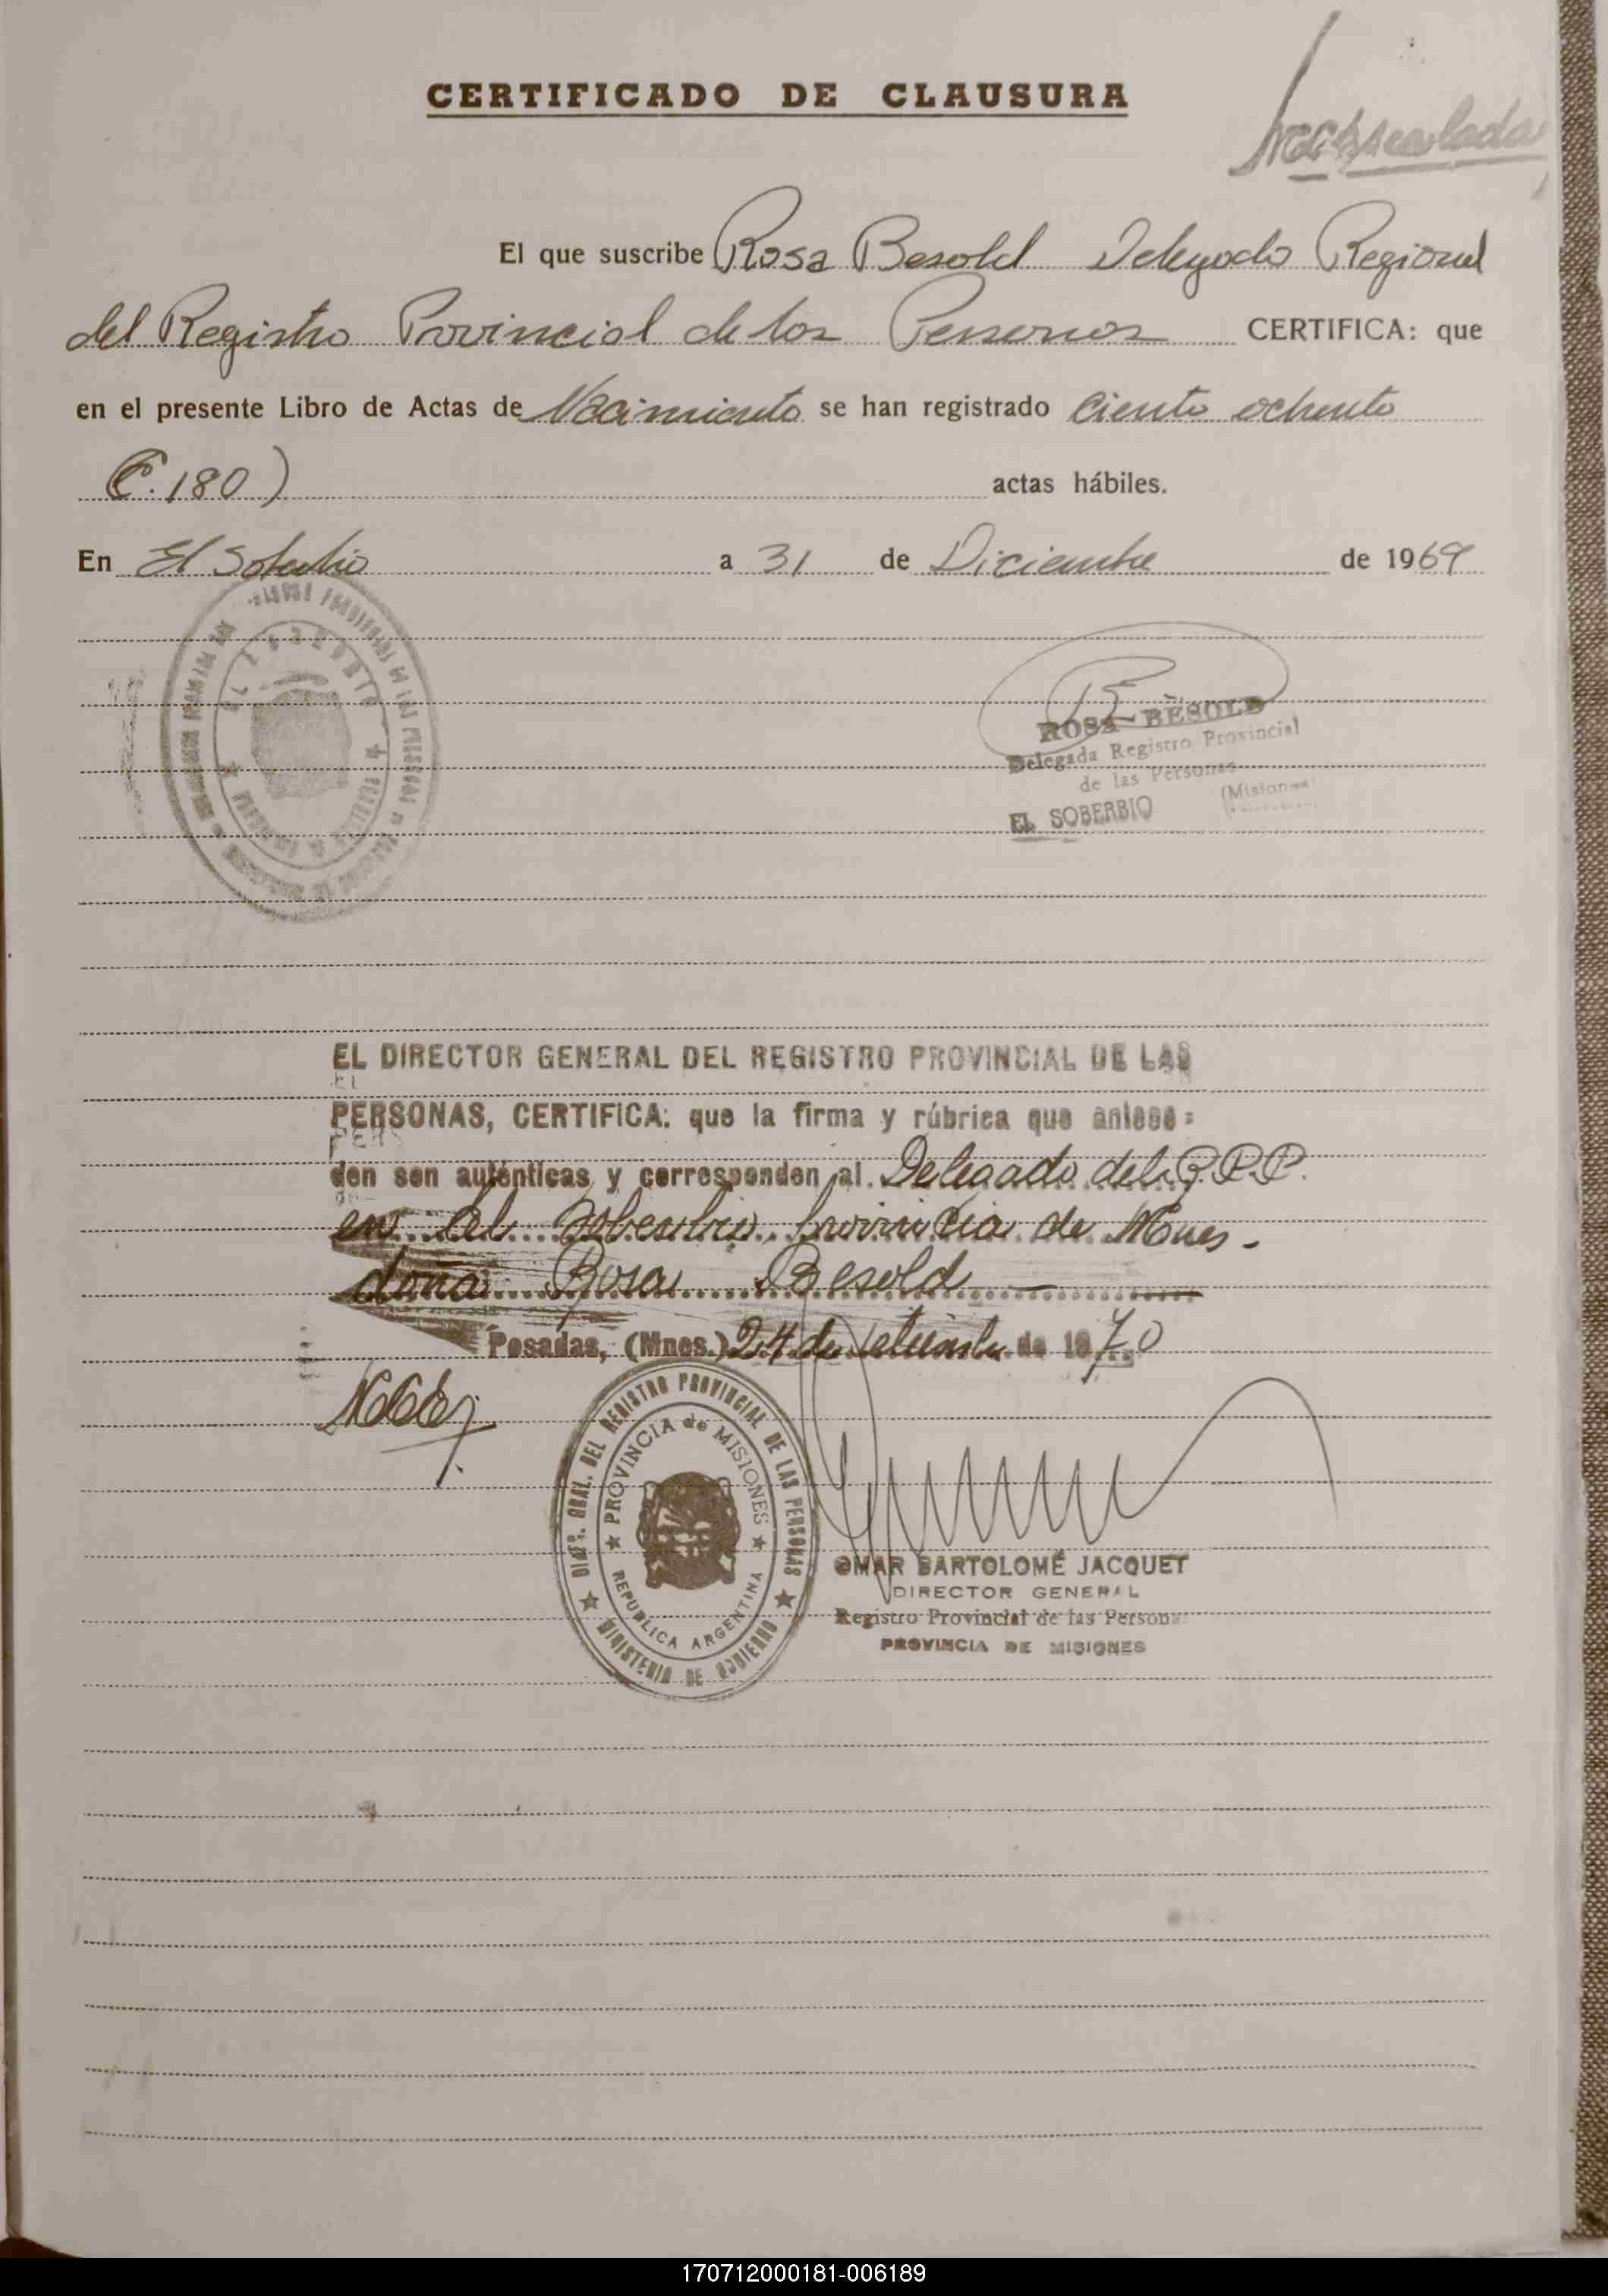 CERTIFICADO DE CLAUSURA
El que suscribe Rosa Besold Delegado Regional
del Registro Provincial de las Personas CERTIFICA: que
en el presente Libro de Actas de Nacimiento se han registrado Ciento ochenta
(180) actas hábiles.
En El Soberbio a 31 de Diciembre de 1969
EL SOBERBIO
ROSA BESOLD
Delegada Registro Provincial
de las Personas
EL SOBERBIO (Misiones)
EL DIRECTOR GENERAL DEL REGISTRO PROVINCIAL DE LAS
PERSONAS, CERTIFICA: que la firma y rúbrica que antece:
den son auténticas y corresponden al Delegado del R.P.P.
en El Soberbio, Provincia de Mnes -
doña Rosa Besold
Posadas, (Mnes.) 24 de Setiembre de 1970
DIRc. GRAL. DEL REGISTRO PROVINCIAL DE LAS PERSONAS
PROVINCIA de MISIONES
REPUBLICA ARGENTINA
MINISTERIO DE GOBIERNO
OMAR BARTOLOMÉ JACQUET
DIRECTOR GENERAL
Registro Provincial de las Personas
PROVINCIA DE MISIONES
170712000181-006189